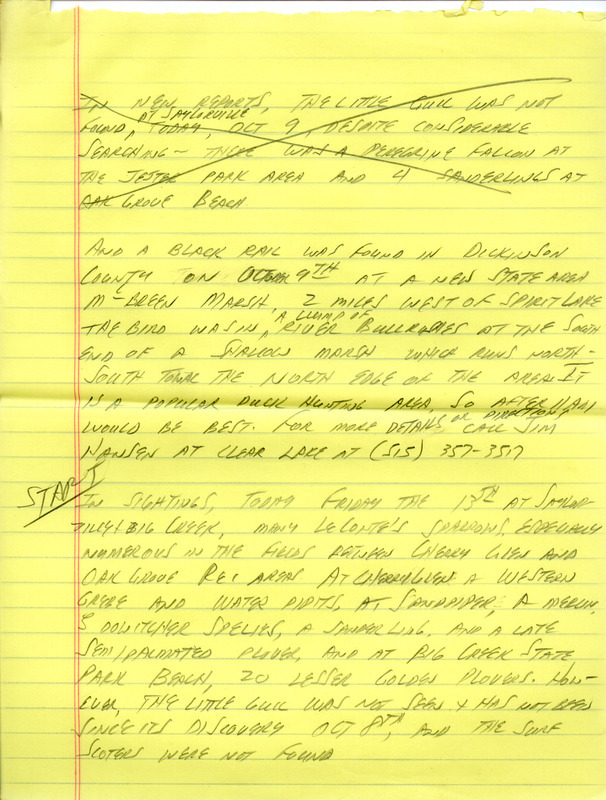 IN NEW REPORTS, THE LITTLE GULL WAS NOT
AT SAYLORVILLE
FOUND, TODAY, OCT 9, DESPITE CONSIDERABLE
SEARCHING - THERE WAS A PEREGRINE FALCON AT
THE JESTER PARK AREA AND 4 SANDERLINGS AT
OAK GROVE BEACH
AND A BLACK RAIL WAS FOUND IN DICKINSON
COUNTY ON OCTOBER 9TH AT A NEW STATE AREA
McBREEN MARSH, 2 MILES WEST OF SPIRIT LAKE
A CLUMP OF
THE BIRD WAS IN RIVER BULLRUSHES AT THE SOUTH
END OF A SHALLOW MARSH WHICH RUNS NORTH-
SOUTH THE NORTH EDGE OF THE AREA. IT
IS A POPULAR DUCK HUNTING AREA, SO AFTER 11 AM
OR DIRECTIONS
WOULD BE BEST. FOR MORE DETAILS CALL JIM
HANSEN AT CLEAR LAKE AT (515) 357-3517
START
IN SIGHTINGS, TODAY FRIDAY THE 13TH AT SAYLOR-
VILLE & BIG CREEK, MANY LECONTE'S SPARROWS, ESPECIALLY
NUMEROUS IN THE FIELDS BETWEEN CHERRY GLEN AND
OAK GROVE REC AREAS. AT CHERRY GLEN: A WESTERN
GREBE AND WATER PIPITS, AT SANDPIPER: A MERLIN,
3 DOWITCHER SPECIES, A SANDERLING, AND A LATE
SEMIPALMATED PLOVER, AND AT BIG CREEK STATE
PARK BEACH, 20 LESSER GOLDEN PLOVERS. HOW-
EVER, THE LITTLE GULL WAS NOT SEEN & HAS NOT BEEN
SINCE ITS DISCOVERY OCT 8TH, AND THE SURF
SCOTERS WERE NOT FOUND